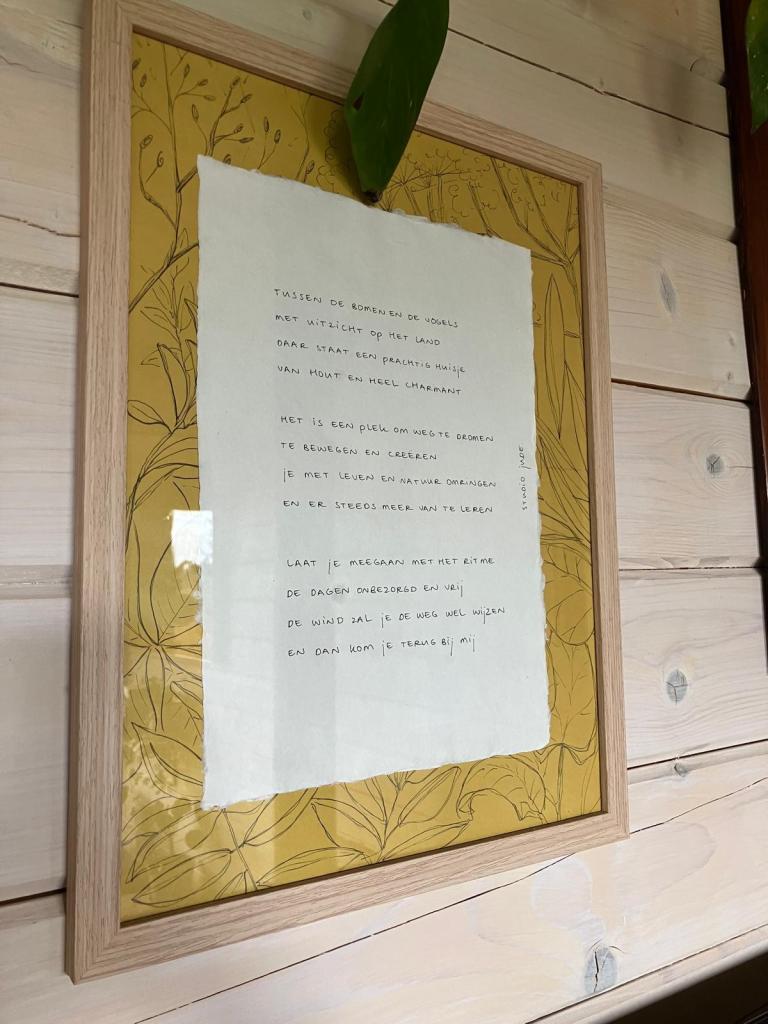 TUSSEN DE BOMEN EN DE VOGELS
MET UITZICHT OP HET LAND
DAAR STAAT EEN PRACHTIG HUISJE
VAN HOUT EN HEEL CHARMANT
HET IS EEN PLEK OM WEG TE DROMEN
TE BEWEGEN EN CREËREN
JE MET LEVEN EN NATUUR OMRINGEN
EN ER STEEDS MEER VAN TE LEREN
LAAT JE MEEGAAN MET HET RITME
DE DAGEN ONBEZORGD EN VRIJ
DE WIND ZAL JE DE WEG WEL WIJZEN
EN DAN KOM JE TERUG BIJ MIJ
STUDIO JUDE